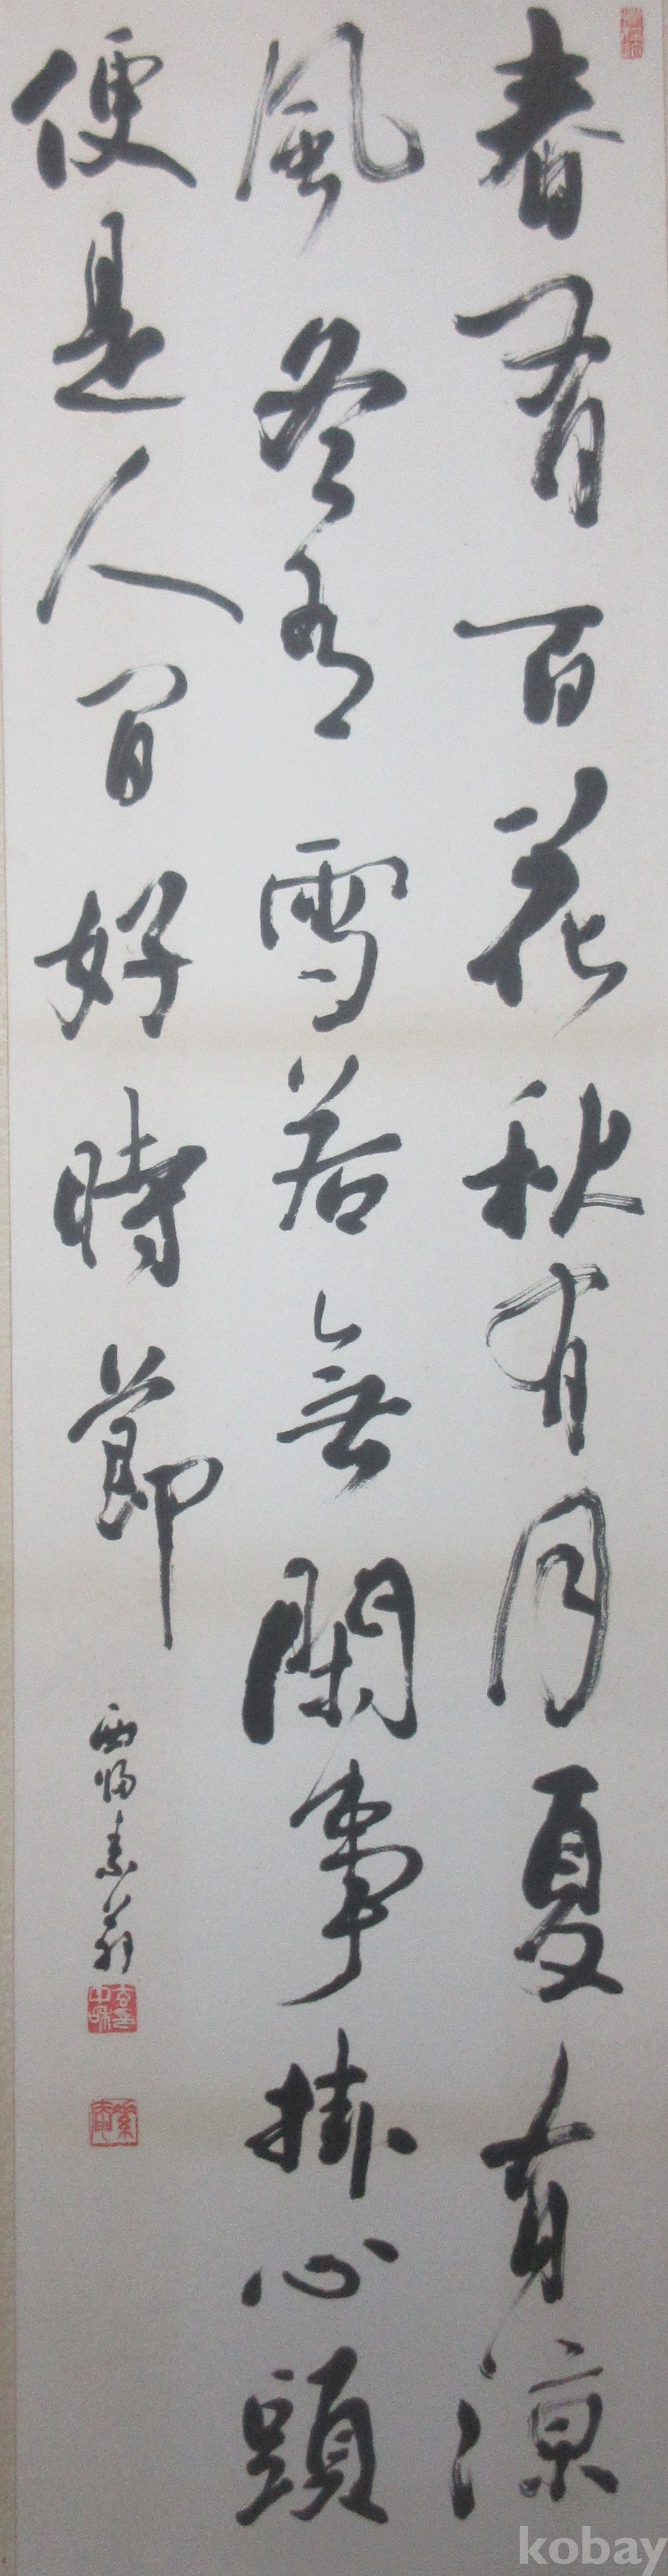 春有百花秋有月夏有涼
風冬有雪若無閑事掛心頭
便是人間好時節
kobay